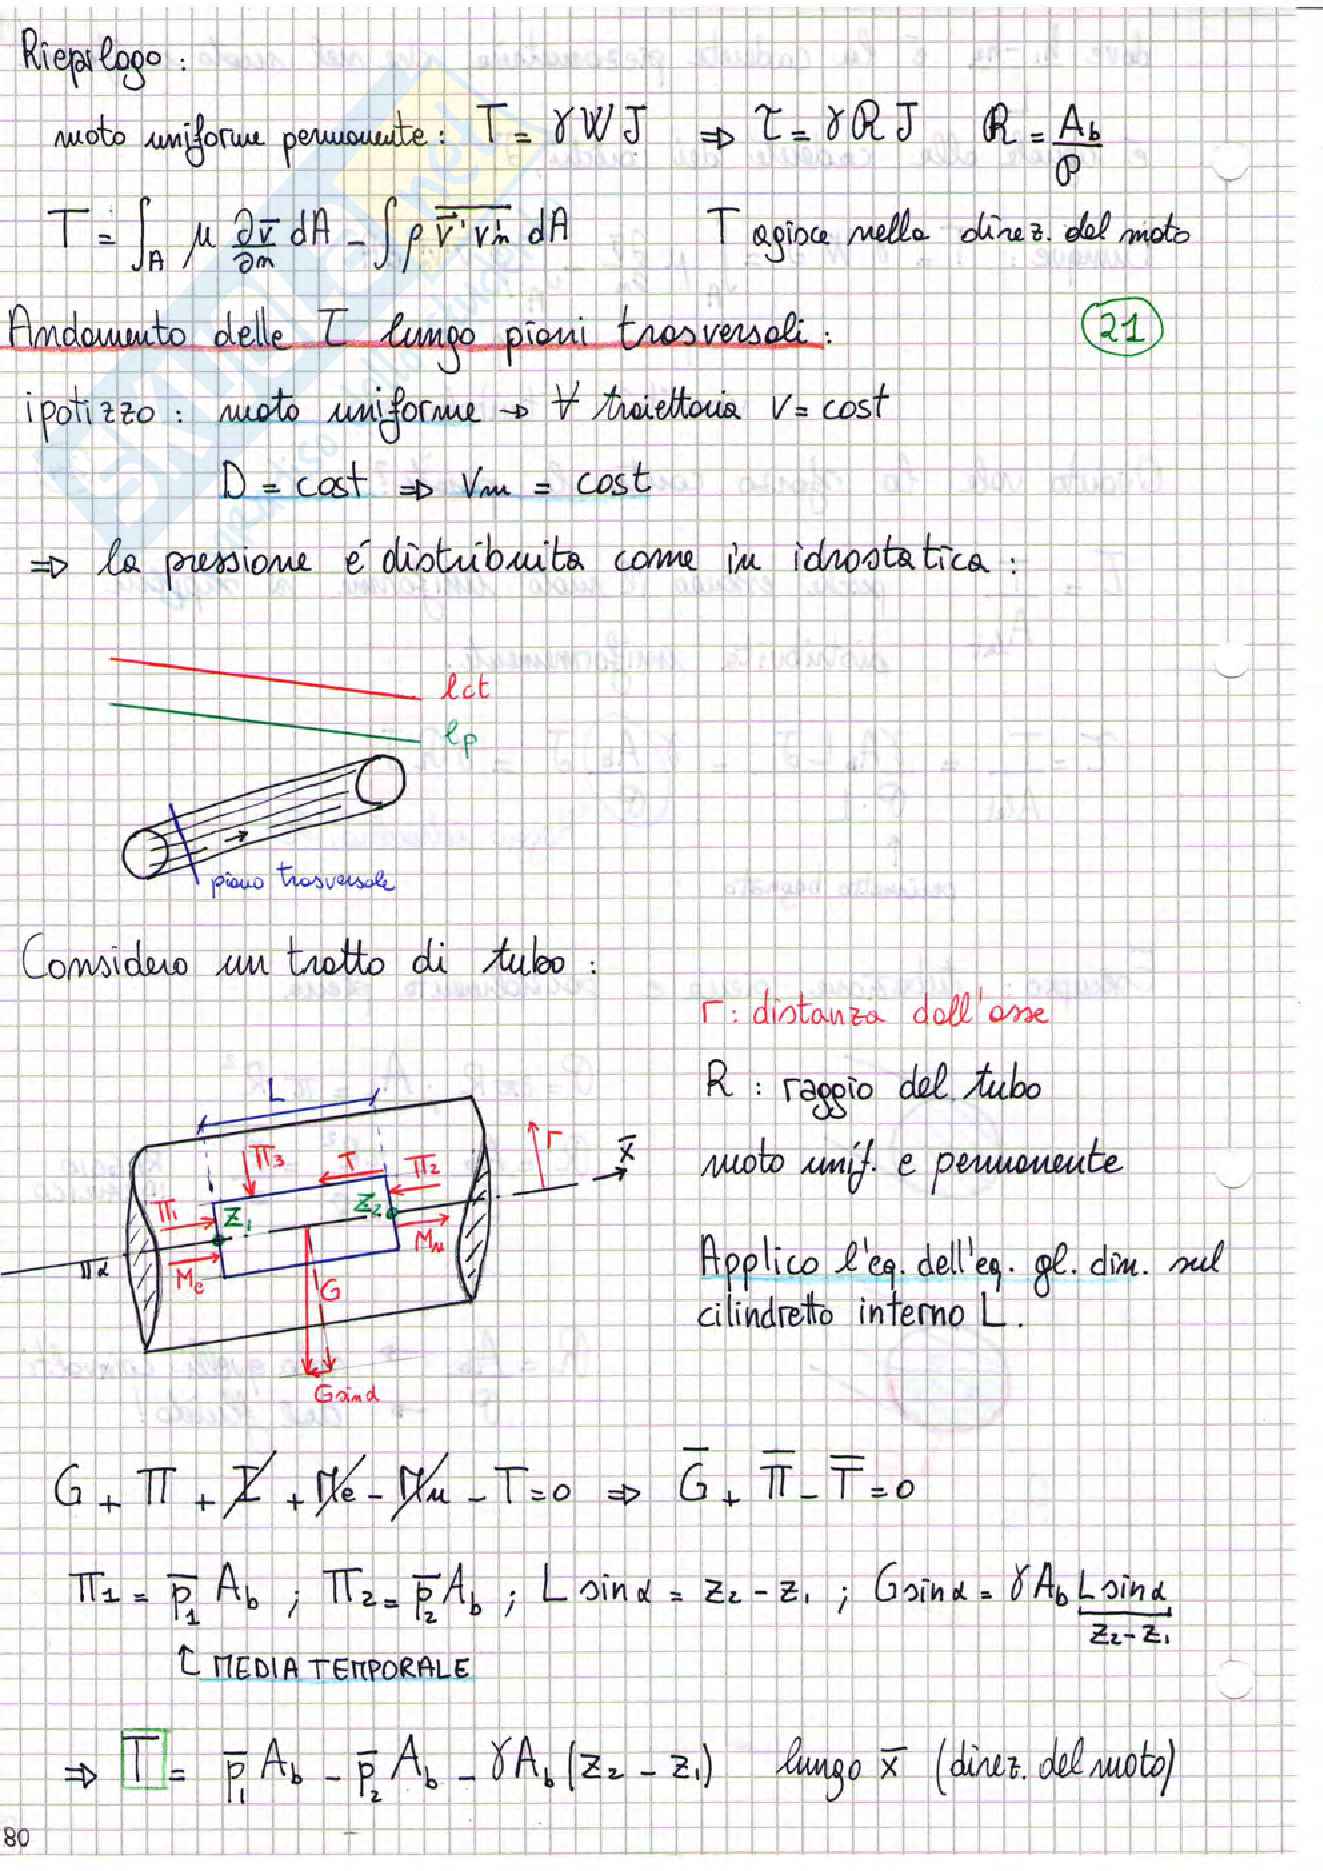 Riepilogo:
moto uniforme permanente: T = γWJ ⇒ τ = γℛJ ℛ = A_b/P
T = ∫_A μ ∂v̄/∂n dA - ∫ρ v̄'v'n dA T agisce nella direz. del moto
Andamento delle τ lungo piani trasversali: 21
ipotizzo: moto uniforme → ∀ traiettoria v = cost
D = cost ⇒ Vm = cost
⇒ la pressione é distribuita come in idrostatica:
lct
lp
piano trasversale
Considero un tratto di tubo:
r: distanza dall'asse
R : raggio del tubo
moto unif. e permanente
Applico l'eq. dell'eq. gl. din. sul
cilindretto interno L.
L
Π3 T Π2 r x̄
Π1 Z1 Z2
Me Mu
α G
Gsinα
G + Π + I + Me - Mu - T = 0 ⇒ Ḡ + Π̄ - T̄ = 0
Π1 = p̄1 A_b ; Π2 = p̄2 A_b ; L sinα = z2 - z1 ; G sinα = γA_b L sinα
z2 - z1
MEDIA TEMPORALE
⇒ T = p̄1 A_b - p̄2 A_b - γA_b (z2 - z1) lungo x̄ (direz. del moto)
80